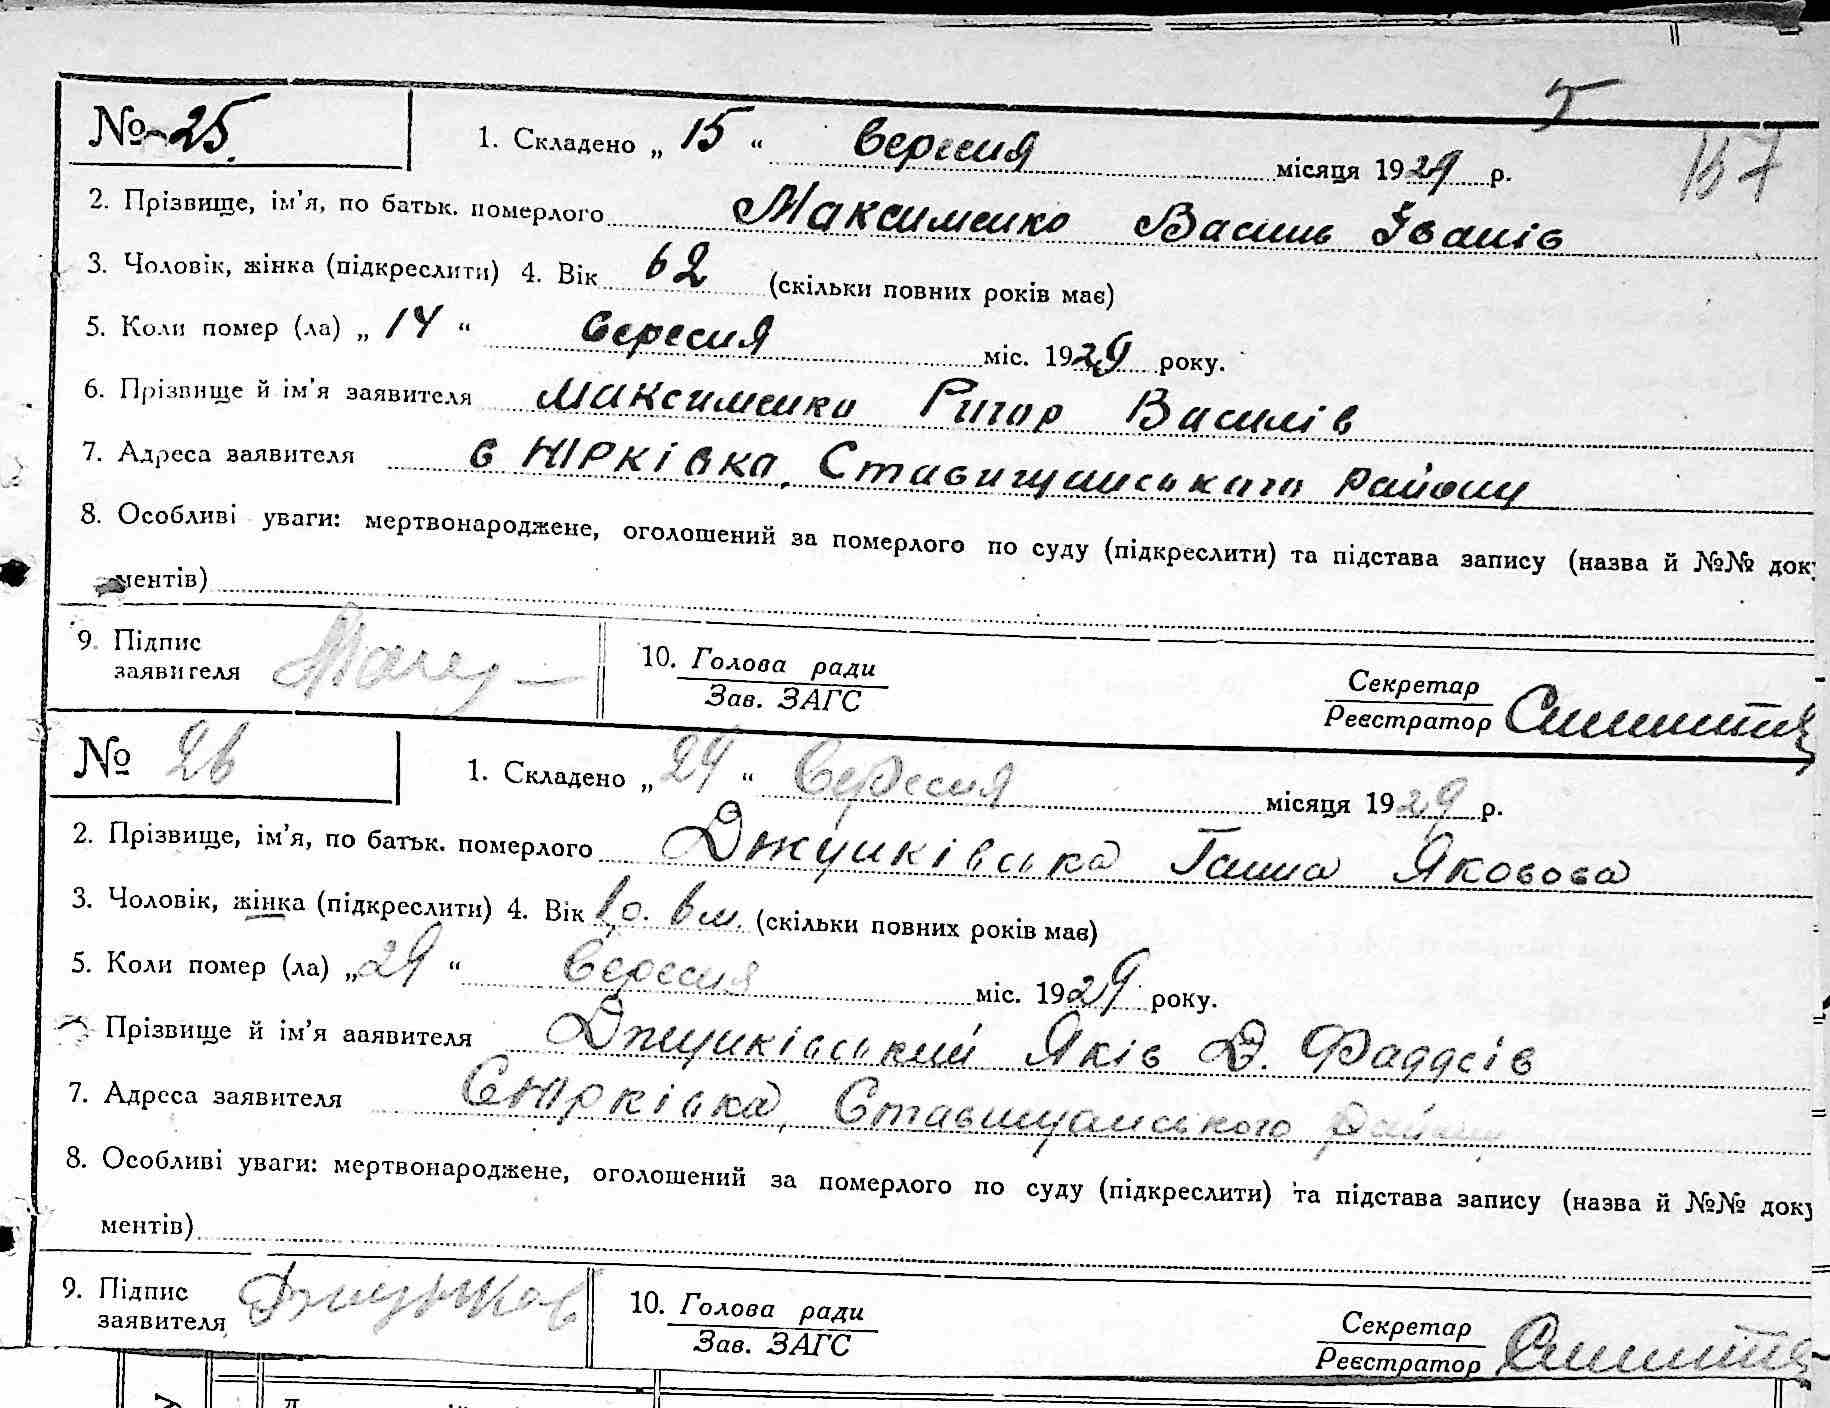 5
№ 25. 1. Складено „ 15 “ Вересня місяця 1929 р.
157
2. Прізвище, ім’я, по батьк. померлого Максименко Василь Іванів
3. Чоловік, жінка (підкреслити) 4. Вік 62 (скільки повних років має)
5. Коли помер (ла) „ 14 “ Вересня міс. 1929 року.
6. Прізвище й ім’я заявителя Максименко Ригор Василів
7. Адреса заявителя с Юрківка, Ставищанського району
8. Особливі уваги: мертвонароджене, оголошений за померлого по суду (підкреслити) та підстава запису (назва й №№ док
ментів)
9. Підпис заявителя
10. Голова ради
Зав. ЗАГС
Секретар
Реєстратор
№ 26 1. Складено „ 29 “ Вересня місяця 1929 р.
2. Прізвище, ім’я, по батьк. померлого Джунківська Ганна Яковова
3. Чоловік, жінка (підкреслити) 4. Вік 6 м. (скільки повних років має)
5. Коли помер (ла) „ 29 “ Вересня міс. 1929 року.
Прізвище й ім’я заявителя Джунківський Яків Д. Фаддеів
7. Адреса заявителя С Юрківка, Ставищанського району
8. Особливі уваги: мертвонароджене, оголошений за померлого по суду (підкреслити) та підстава запису (назва й №№ док
ментів)
9. Підпис заявителя Джунков
10. Голова ради
Зав. ЗАГС
Секретар
Реєстратор